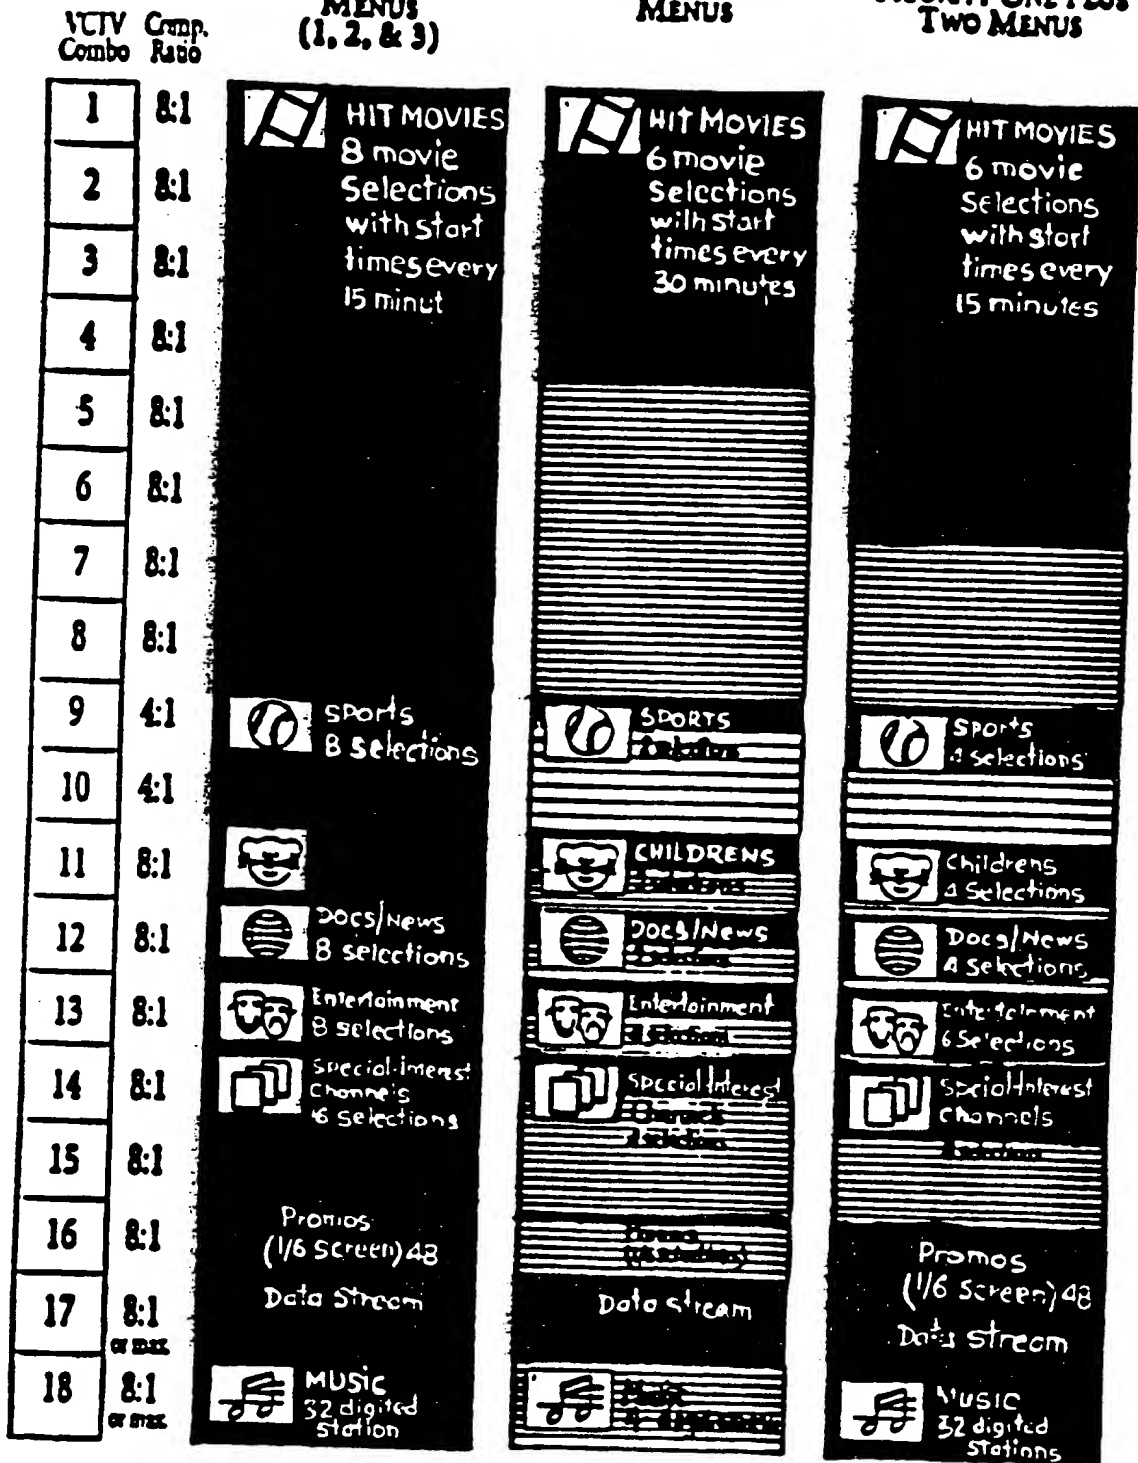 VCTV
Combo
Comp.
Ratio
MENUS
(1, 2, & 3)
MENUS
TWO MENUS
1 8:1
2 8:1
3 8:1
4 8:1
5 8:1
6 8:1
7 8:1
8 8:1
9 4:1
10 4:1
11 8:1
12 8:1
13 8:1
14 8:1
15 8:1
16 8:1
17 8:1
or max.
18 8:1
or max.
HIT MOVIES
8 movie
Selections
with start
times every
15 minut
Sports
8 selections
Docs/News
8 selections
Entertainment
8 selections
Special-Interest
Channels
6 selections
Promos
(1/6 Screen) 48
Data Stream
MUSIC
32 digited
Station
HIT MOVIES
6 movie
Selections
with start
times every
30 minutes
SPORTS
CHILDRENS
Docs/News
Entertainment
Special Interest
Data stream
HIT MOVIES
6 movie
Selections
with start
times every
15 minutes
Sports
4 selections
Childrens
4 Selections
Docs/News
4 Selections
Entertainment
6 Selections
Special Interest
Channels
Promos
(1/6 Screen) 48
Data Stream
MUSIC
32 digited
Stations